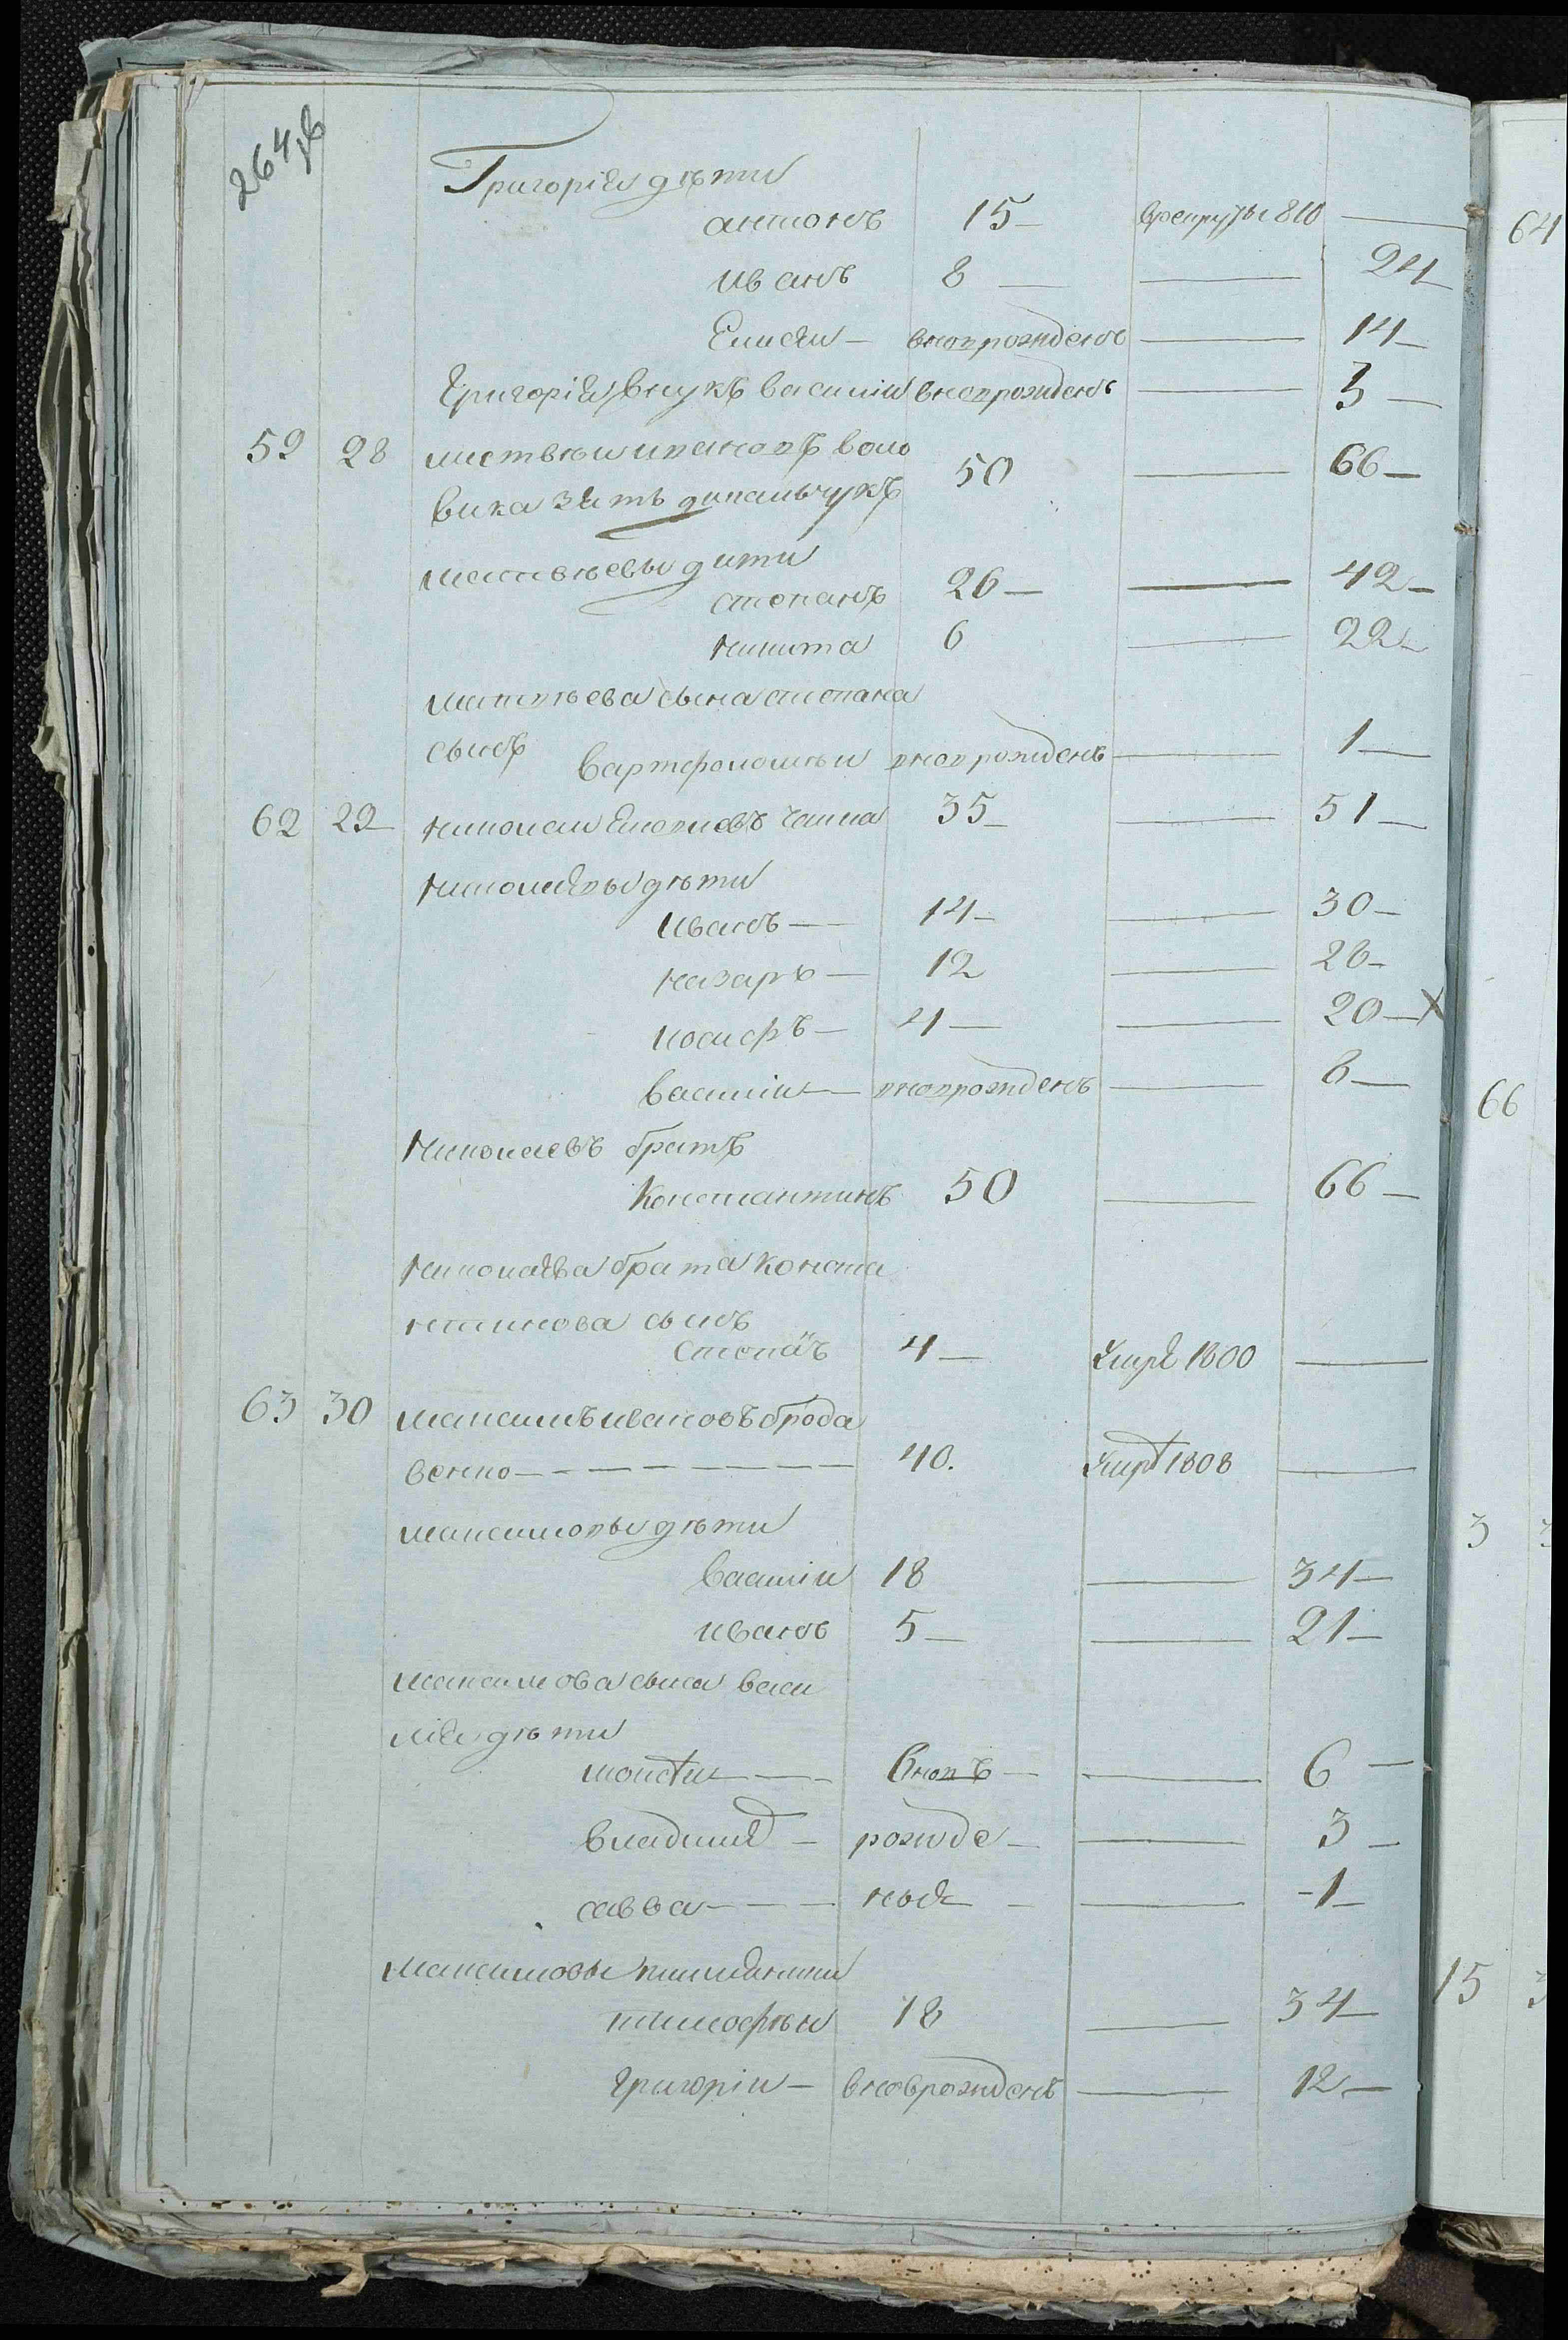 264 об
Григорія дѣти
антонъ 15 — врекруты 810 —
иванъ 8 — — 24
Елисѣи — вновърожденъ — 14
Григорія внукъ василіи вновърожденъ — 3 —
59 28 матвѣи ивановъ воло
вика зять 50 — 66 —
матвѣевы дѣти
степанъ 26 — — 42 —
никита 6 — 22
матвѣева сына степана
сынъ вартфоломѣи вновърожденъ — 1 —
62 29 николаи 35 — — 51 —
николаевы дѣти
иванъ — 14 — — 30 —
назаръ — 12 — 28 —
иосифъ — 4 — — 20 — х
василіи — вновърожденъ — 6 —
николаевъ братъ
константинъ 50 — 66 —
николаева брата конста
нтинова сынъ
степанъ 4 — умре 1800 —
63 30 максимъ ивановъ брода
венко — 40. умре 1808 —
максимовы дѣти
василіи 18 — 34 —
иванъ 5 — — 21 —
максимова сына васи
лія дѣти
моисѣи — вновъ — — 6 —
владимѣ — рожде — — 3 —
савва — ныя — — 1 —
максимовы
тимофѣи 18 — 34 —
григоріи — вноврожденъ — 12 —
64
66
3
15